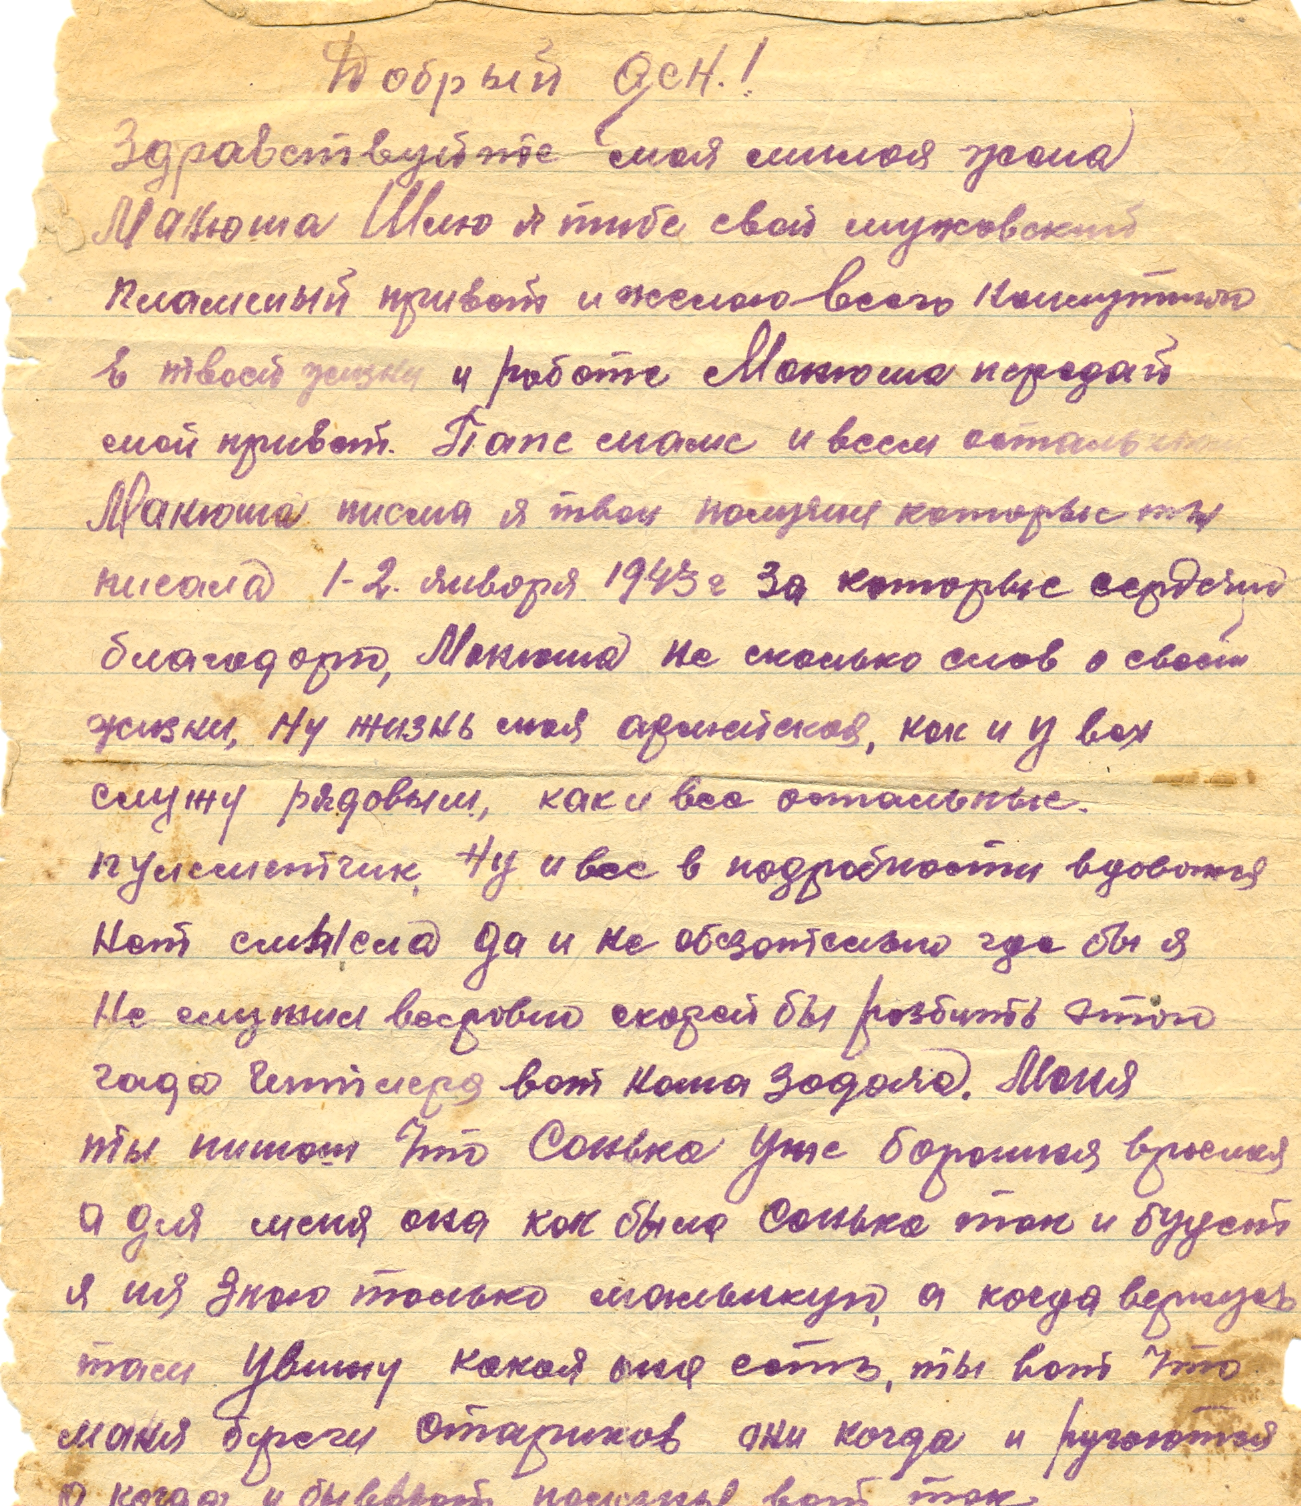 Добрый ден.!
Здравствуйте моя милая жена
Манюша Шлю я тибе свой мужовский
пламеный привет и желаю всего
в твоей жизни и работе Манюша передай
мой привет. Папе маме и всем остальным
Манюша писма я твои получил которые ты
писала 1-2. января 1943 г за которые сердечно
благодарю, Манюша не сколько слов о своей
жизни, Ну жизнь моя армейская, как и у всех
служу рядовым, как и все остальные.
пулеметчик, Ну и все в подробности вдоваться
Нет смысла да и не обезательно где бы я
Не служил всеровно скорей бы разбить этого
гада Гитлера вот наша задача. Маня
ты пишеш что Сонька уже барышня
а для меня она как была Сонька так и будет
я ия знаю только маленькую, а когда вернусь
там увижу какая она есть, ты вот что
маня береги стариков они когда и ругаются
а когда и бывают вот так